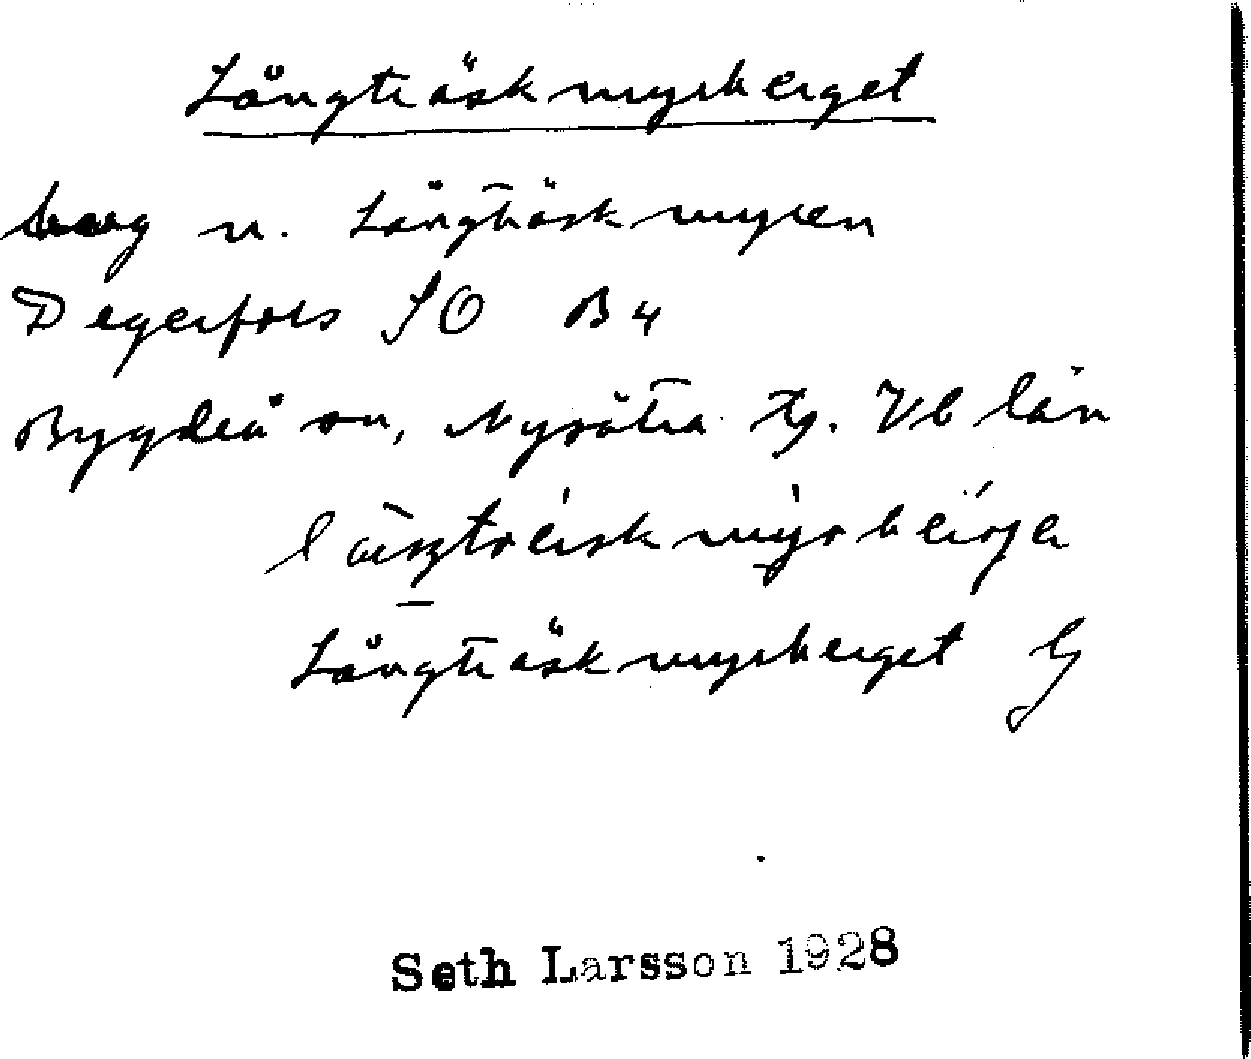 Långträskmyrberget
berg n. Långträskmyren
Degerfors SO B4
Bygdeå sn, Nysätra tg. Vb län
Långträskmyrberget G
Seth Larsson 1928